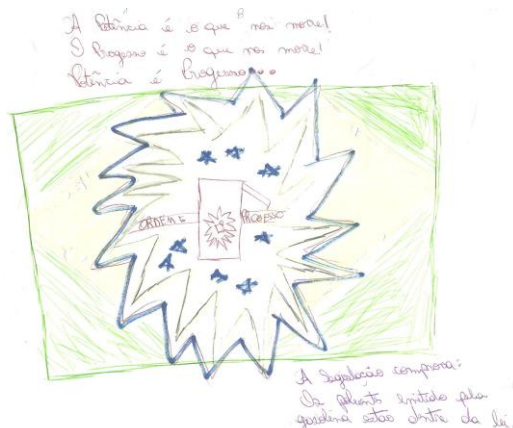 A Potência é o que nos move!
O Progresso é o que nos move!
Potência é Progresso...
ORDEM E PROGRESSO
A legislação comprova:
Os poluente emitido pela
gasolina estão dentro da lei.